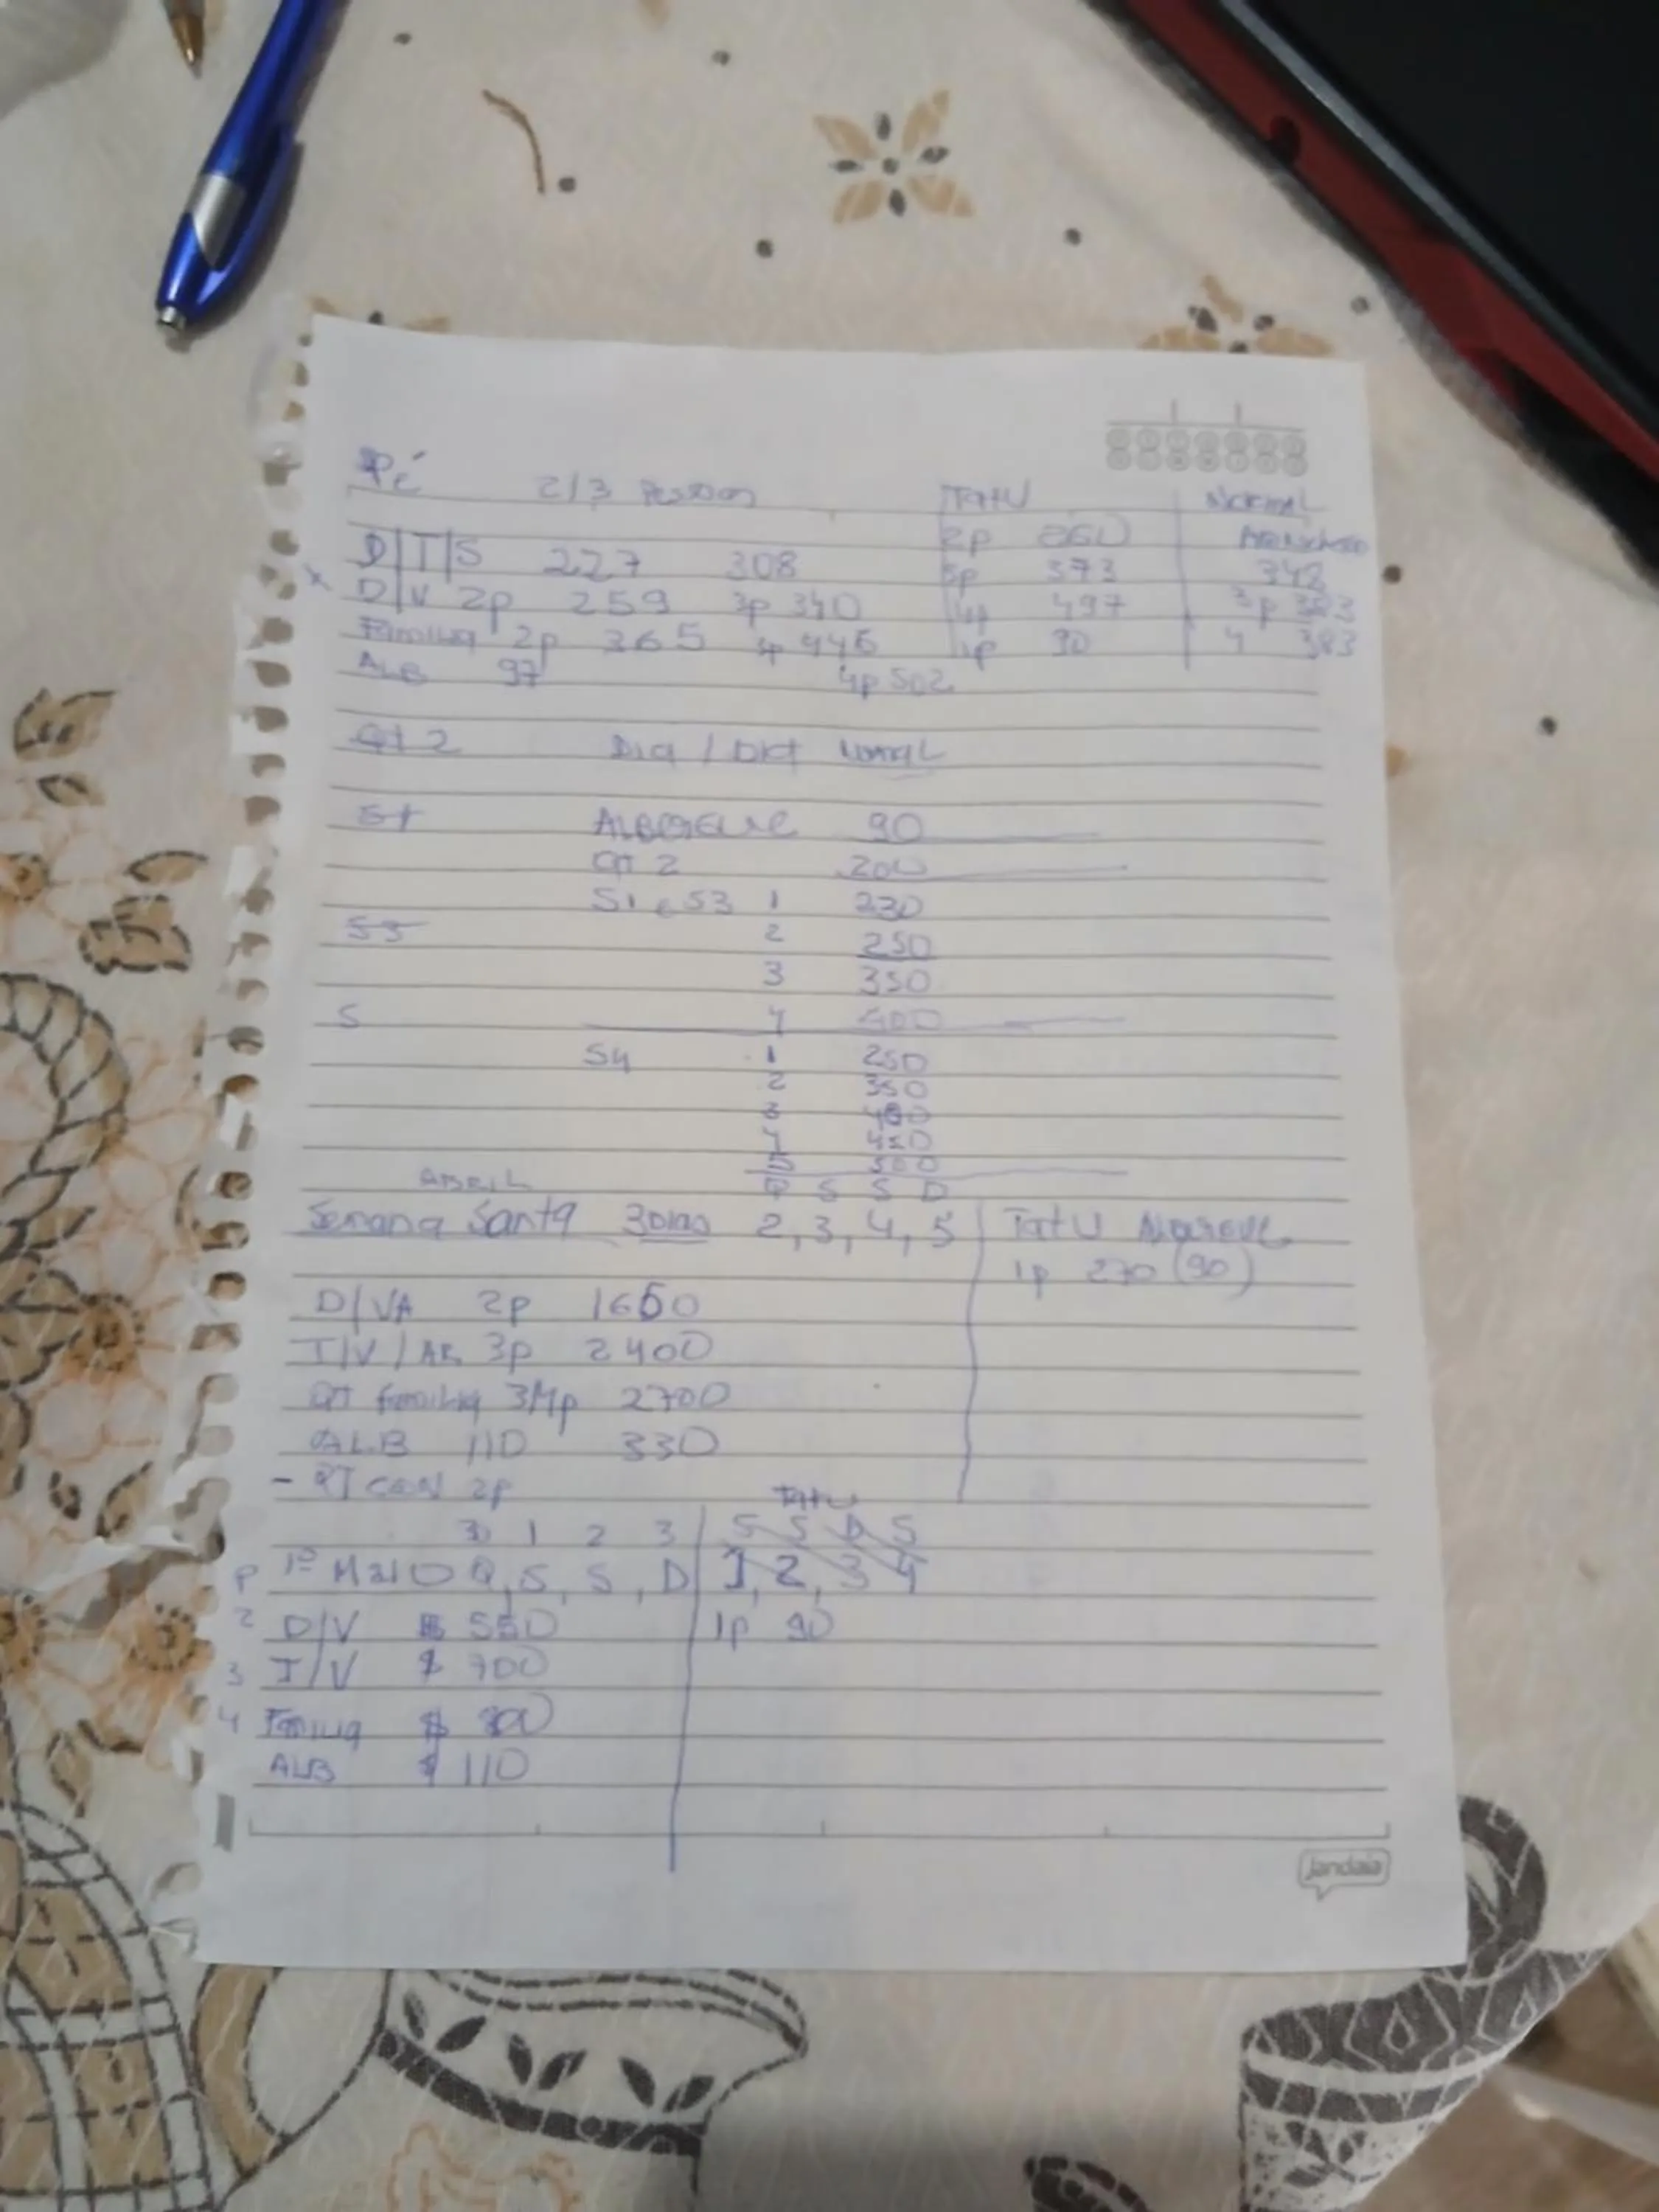 Pé 2/3 Pessoas Tatu Normal
D|T|S 227 308 2p 260
x D|V 2p 259 3p 340 3p 373 348
Familia 2p 365 446 4p 497 3p
ALB 97 4p 502 1p 90 4 383
QT 2 Dia / Diat Normal
S1 ALBERGUE 90
QT 2 200
S1 e S3 1 230
S3 2 250
3 350
S 4 400
S4 1 250
2 350
3
4
5 500
ABRIL Q S S D
Semana Santa 3 Dias 2, 3, 4, 5 Tatu Albergue
1p 270 (90)
D/VA 2p 1650
T/V/AR 3p 2400
QT familia 3/4p 2700
ALB 110 330
- QT CON 2p Tatu
30 1 2 3 S S D S
P 1º Maio Q, S, S, D 1, 2, 3 4
2 D/V $ 550 1p 90
3 T/V $ 700
4 Familia $ 800
ALB $ 110
jandaia